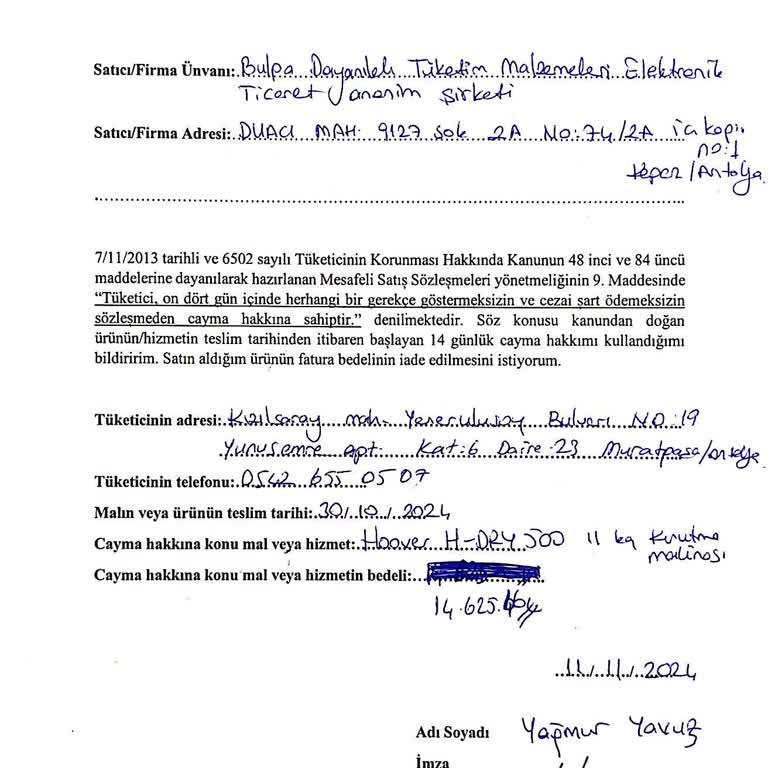 Satıcı/Firma Ünvanı: Bulpa Dayanıklı Tüketim Malzemeleri Elektronik
Ticaret Anonim Şirketi
Satıcı/Firma Adresi: DUACI MAH. 9127 Sok 2A NO:74/2A iç kapı
no:1
Kepez/Antalya
7/11/2013 tarihli ve 6502 sayılı Tüketicinin Korunması Hakkında Kanunun 48 inci ve 84 üncü
maddelerine dayanılarak hazırlanan Mesafeli Satış Sözleşmeleri yönetmeliğinin 9. Maddesinde
“Tüketici, on dört gün içinde herhangi bir gerekçe göstermeksizin ve cezai şart ödemeksizin
sözleşmeden cayma hakkına sahiptir.” denilmektedir. Söz konusu kanundan doğan
ürünün/hizmetin teslim tarihinden itibaren başlayan 14 günlük cayma hakkımı kullandığımı
bildiririm. Satın aldığım ürünün fatura bedelinin iade edilmesini istiyorum.
Tüketicinin adresi: Kızılsaray mah. Yener Ulusoy Bulvarı NO:19
Yunusemre apt. Kat:6 Daire 23 Muratpaşa/Antalya
Tüketicinin telefonu: 0542 655 0507
Malın veya ürünün teslim tarihi: 30/10/2024
Cayma hakkına konu mal veya hizmet: Hoover H-DRY 500 11 kg Kurutma
makinası
Cayma hakkına konu mal veya hizmetin bedeli:
14.625
11/11/2024
Adı Soyadı Yağmur Yavuz
İmza